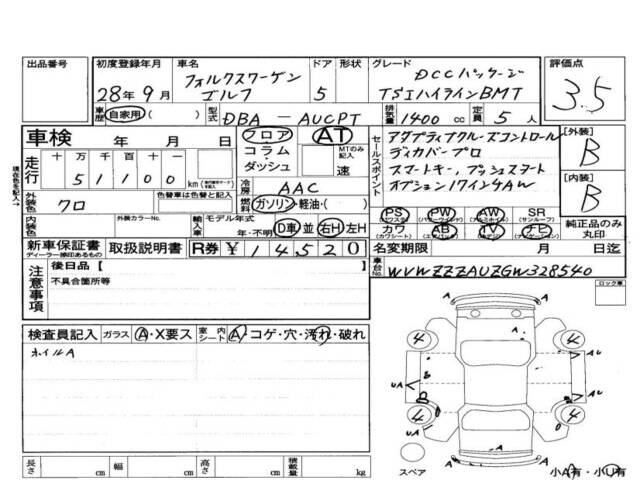 出品番号
初度登録年月 車名 ドア 形状 グレード 評価点
28年9月 フォルクスワーゲン ゴルフ 5 DCCパッケージ
TSIハイラインBMT
3.5
車歴 自家用( ) 型式 DBA-AUCPT 排気量 1400 cc 定員 5人
車検 年 月 日
フロア AT
コラム・ダッシュ
MTのみ記入
速
走行 十 万 千 百 十 一
51100 km
冷房 AAC
セールスポイント
アダプティブクルーズコントロール
ディカバープロ
スマートキー、プッシュスタート
オプション17インチAW
[外装] B
[内装] B
現在色を記入→
外装色 クロ 色替車は色替と記入
ガソリン・軽油・( )
PS PW AW SR
(パワステ) (パワーウィンドウ) (アルミホイル) (サンルーフ)
カワ AB TV ナビ
(カワシート) (エアバッグ) (テレビ) (ナビゲーション)
純正品のみ丸印
内装色 外装カラーNo.
輸入車 モデル年式 年・不明 D車 並 右H 左H
新車保証書 取扱説明書 R券 ¥ 14520
ディーラー捺印あるもの
名変期限 月 日迄
車台No. WVWZZZAUZGW328540
注意事項 後日品[ ]
不具合箇所等
ロック車
検査員記入 ガラス A・X要ス 室内シート A・コゲ・穴・汚れ・破れ
ホイルA
A
A U
4 4
B
UA
A
4 4
UA
A
スペア
小A有・小U有
長さ cm 幅 cm 高さ cm 積載量 kg